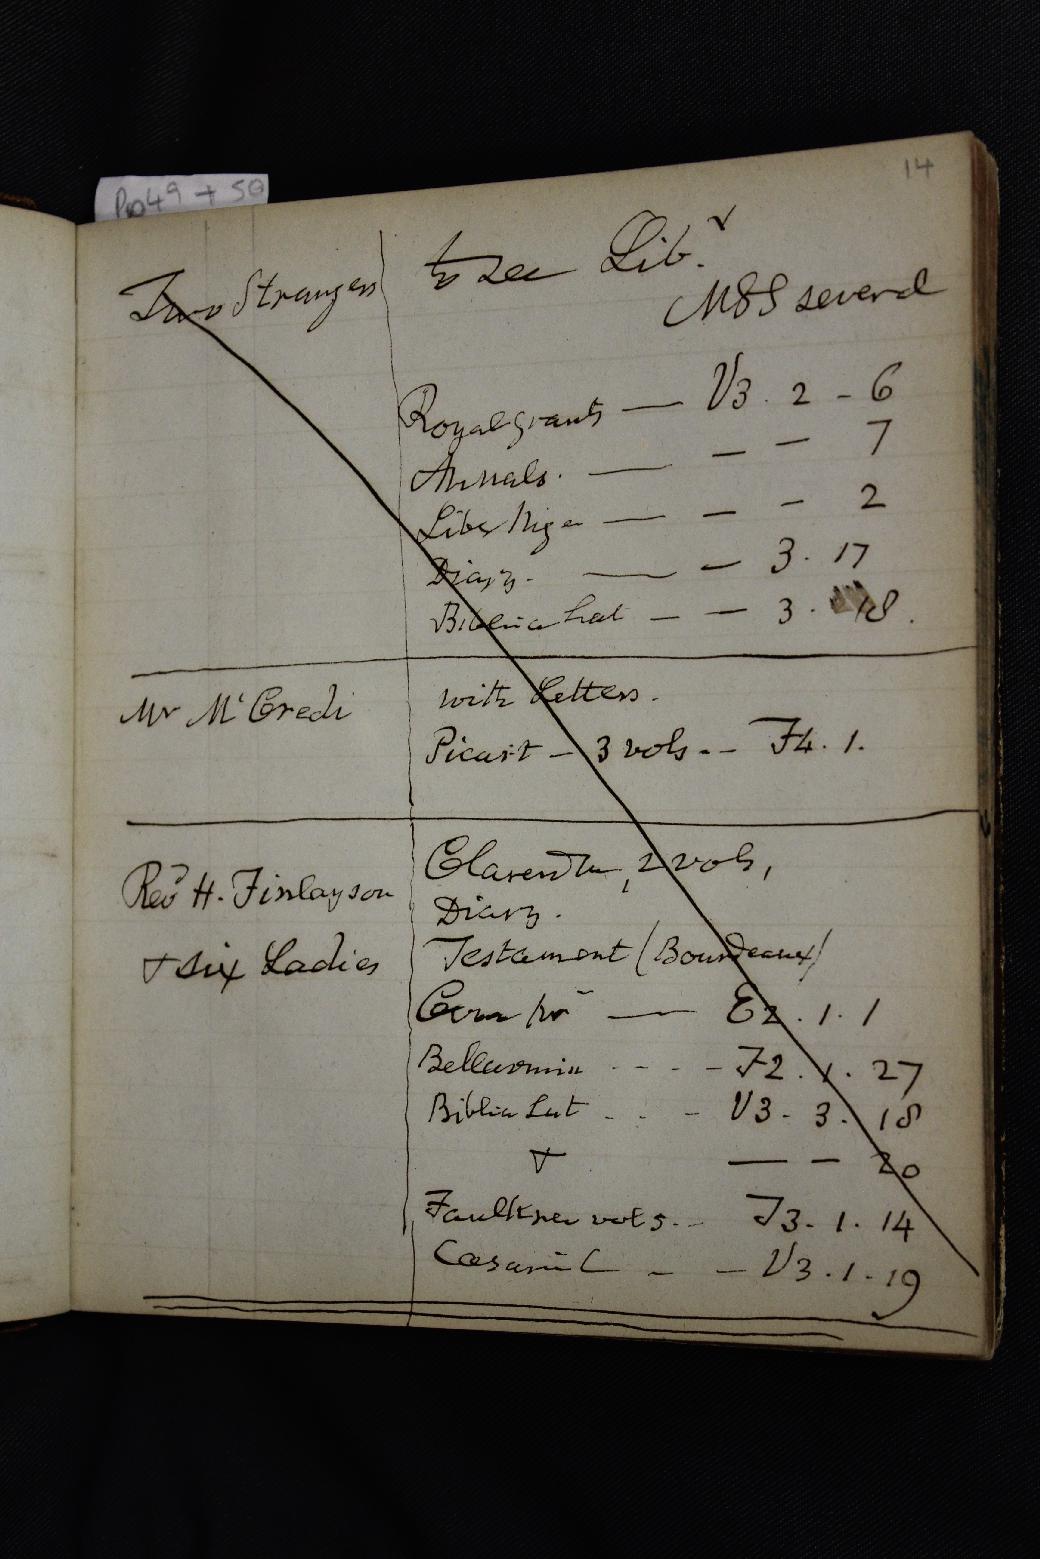 14
Pp 49 + 50
Two Strangers to see Lib.y
MSS several
Royal grants — V3. 2 - 6
Annals. — — — 7
Liber Niger — — - 2
Diary. — — 3. 17
Biblia Lat — — 3. 18.
Mr McCredi with Letters.
Picart — 3 vols -- F4. 1.
Clarendon, 2 vols,
Revd H. Finlayson
Diary.
+ six Ladies Testament (Bourdeaux)
Com pr — E2. 1. 1
Bellarmin - - - - F2. 1. 27
Biblia Lat - - - V3. 3. 18
+ — — 20
Faulkner vol 5. - - J3. 1. 14
— — V3. 1. 19